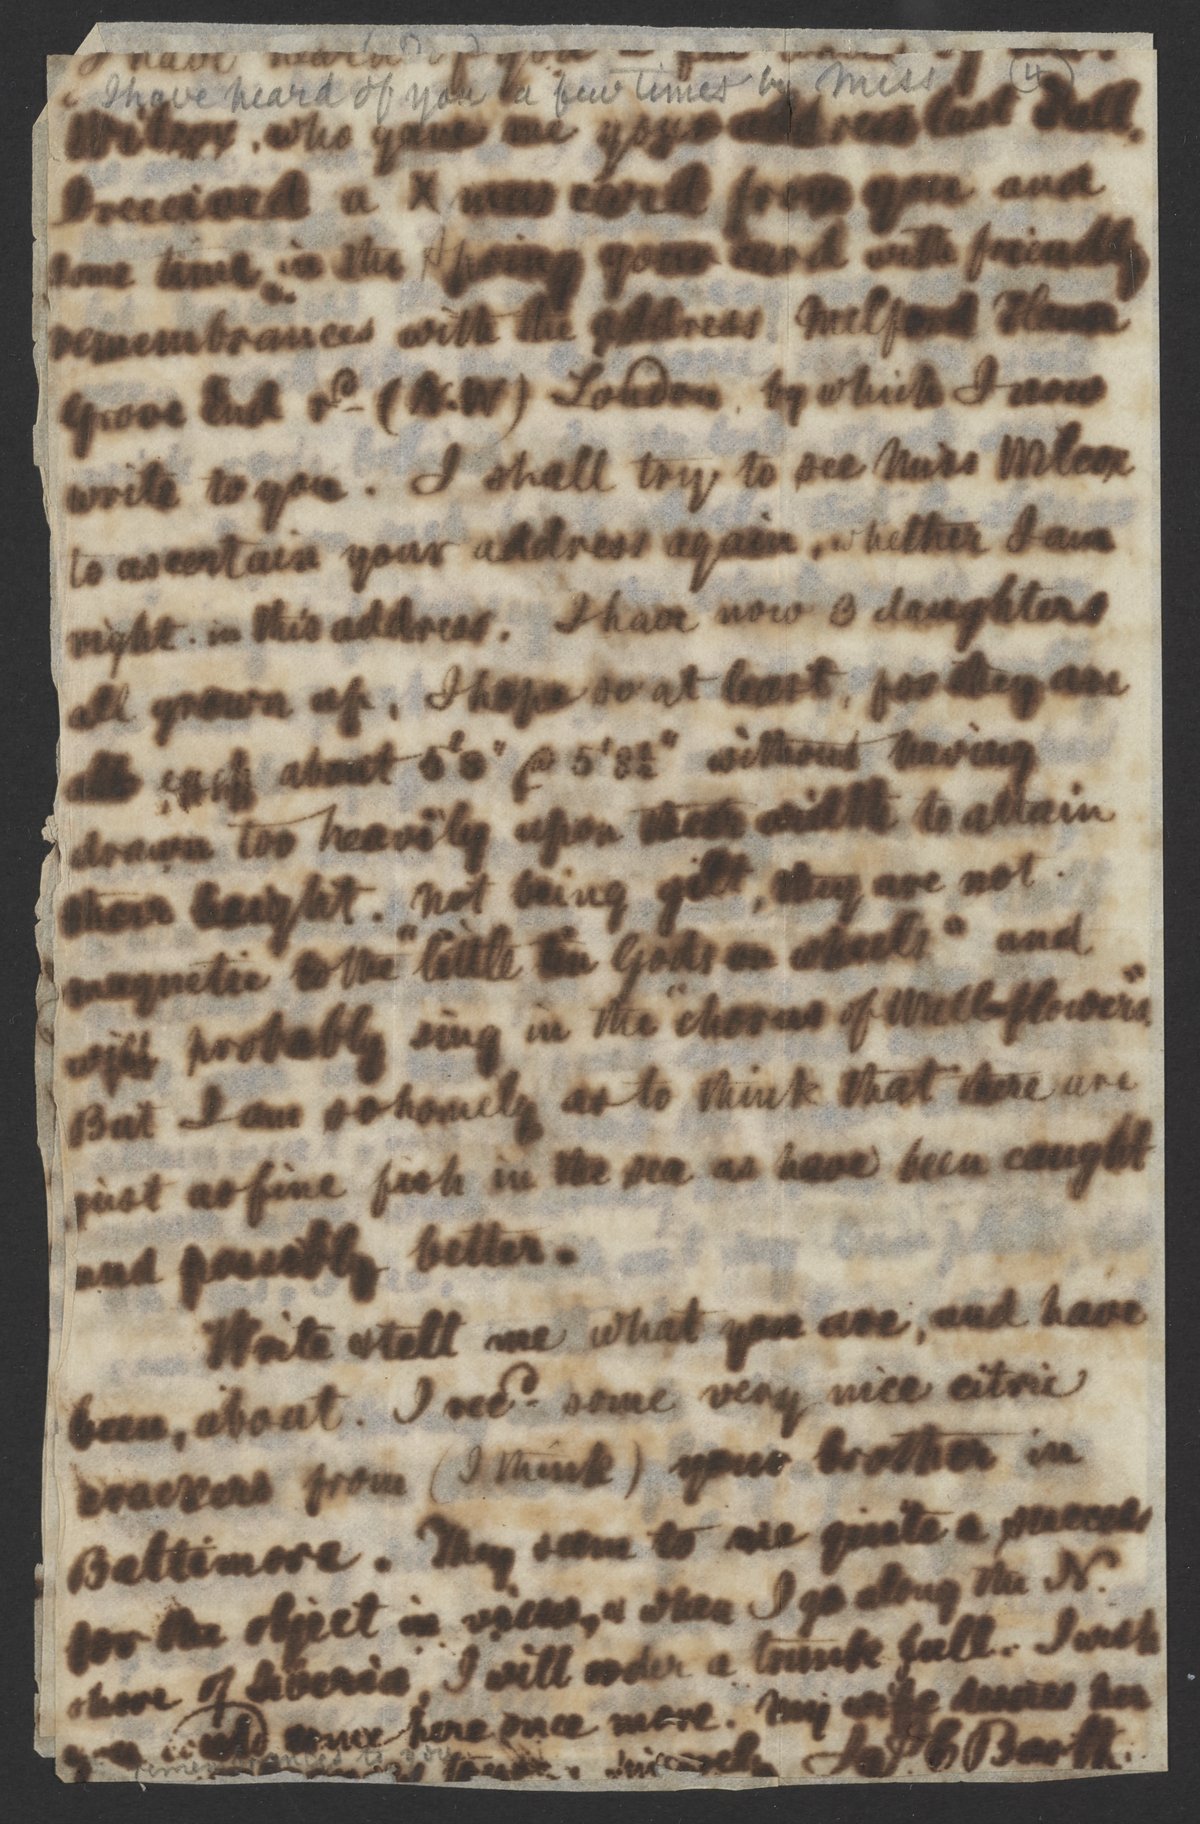 I have heard of you a few times by Miss
④
I have heard of you a few times by Miss
Wilcox, who gave me your address last Fall.
I received a X mas card from you and
some time in the Spring your card with friendly
remembrances with the address Melford House
Grove End rd (N.W) London, by which I now
write to you. I shall try to see Miss Wilcox
to ascertain your address again, whether I am
right in this address. I have now 3 daughters
all grown up, I hope so at least, for they are
all each about 5'8" @ 5'8½" without having
drawn too heavily upon their width to attain
their height. Not being gilt, they are not
magnetic to the "little tin Gods on wheels" and
will probably sing in the "chorus of Wall-flowers".
But I am so homely as to think that there are
just as fine fish in the sea as have been caught
and possibly better.
Write & tell me what you are, and have
been, about. I recd some very nice citric
crackers from (I think) your brother in
Baltimore. They seem to me quite a success
for the object in view, & when I go along the N.
shore of Siberia, I will order a trunk full. I wish
you could come here once more. My wife desires her
remembrances to you
sincerely Barth.